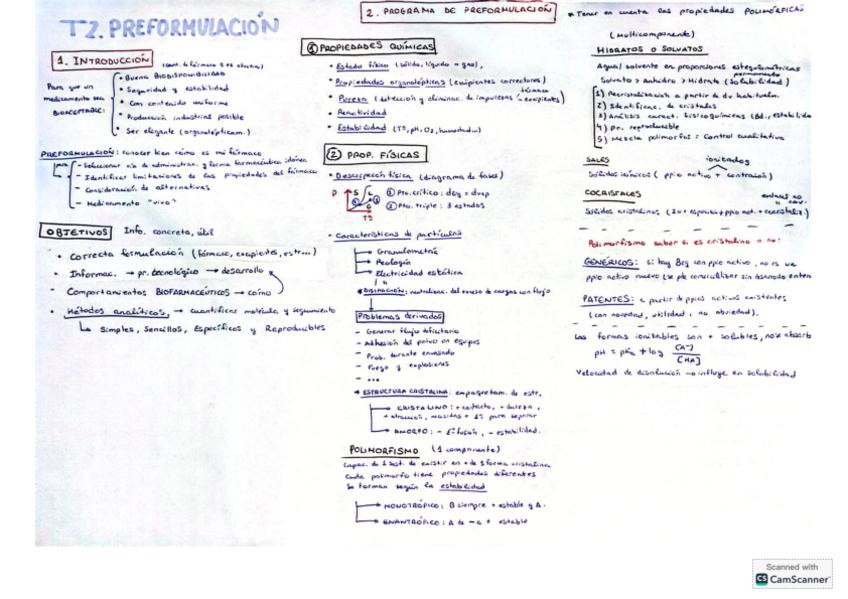 T2. PREFORMULACIÓN
1. INTRODUCCIÓN
Para que un medicamento sea BIOACEPTABLE:
• Buena BIODISPONIBILIDAD
• Seguridad y estabilidad
• Con contenido uniforme
• Producción industrial posible
• Ser elegante (organolépticam.)
PREFORMULACIÓN: conocer bien cómo es mi fármaco
- Seleccionar vía de administrac. y forma farmacéutica idónea
- Identificar limitaciones de las propiedades del fármaco
- Consideración de alternativas
- Medicamento "vivo"
OBJETIVOS Info. concreta, útil
• Correcta formulación (fármaco, excipientes, estr...)
• Informac. → pr. tecnológico → desarrollo
• Comportamientos BIOFARMACÉUTICOS → cómo
• Métodos analíticos, → cuantificar molécula y seguimiento
Simples, Sencillos, Específicos y Reproducibles
2. PROGRAMA DE PREFORMULACIÓN
① PROPIEDADES QUÍMICAS
• Estado físico (sólido, líquido o gas),
• Propiedades organolépticas (excipientes correctores)
• Pureza (detección y eliminac. de impurezas fármaco + excipientes)
• Reactividad
• Estabilidad (Tª, pH, O2, humedad...)
② PROP. FÍSICAS
• Descripción física (diagrama de fases)
P S L G Tª
① Pto. crítico: dliq = dvap
② Pto. triple: 3 estados
• Características de partículas
Granulometría
Reología
Electricidad estática
DISIPACIÓN: neutralizac. del exceso de cargas con flujo
Problemas derivados
- Generar flujo deficitario
- Adhesión del polvo en equipos
- Prob. durante envasado
- Fuego y explosiones
- ...
ESTRUCTURA CRISTALINA: empaquetam. de estr.
CRISTALINO: + compacto, + dureza,
+ atracción, necesitas + E para separar
AMORFO: - Eª fusión, - estabilidad.
POLIMORFISMO (1 componente)
Capac. de 1 sust. de existir en + de 1 forma cristalina
Cada polimorfo tiene propiedades diferentes
Se forman según la estabilidad
MONOTRÓPICO: B siempre + estable q A.
ENANTRÓPICO: A + estable
* Tener en cuenta las propiedades POLIMÓRFICAS
(multicomponente)
HIDRATOS O SOLVATOS
Agua/ solvente en proporciones estequiométricas
Solvato > Anhidro > Hidrato (solubilidad)
1) Recristalización a partir de
2) Identificac. de cristales
3) Análisis caract. fisicoquímicas (Sd., estabilidad
4) Pr. reproducible
5) Mezcla polimorfos = Control cualitativo
SALES ionizados
Sólidos iónicos (ppio activo + contraión)
COCRISTALES
Sólidos cristalinos (2 o + especies = ppio act. + cocristaliz.)
Polimorfismo saber si es cristalino o no!
GENÉRICOS: si hay Beq con ppio activo, no es un
ppio activo nuevo (se pte comercializar sin desarrollo entero
PATENTES: a partir de ppios activos existentes
(con novedad, utilidad, no obviedad).
Las formas ionizables son + solubles, no se absorb
pH = pKa + log [A-] / [HA]
Velocidad de disolución no influye en solubilidad
Scanned with
CS CamScanner